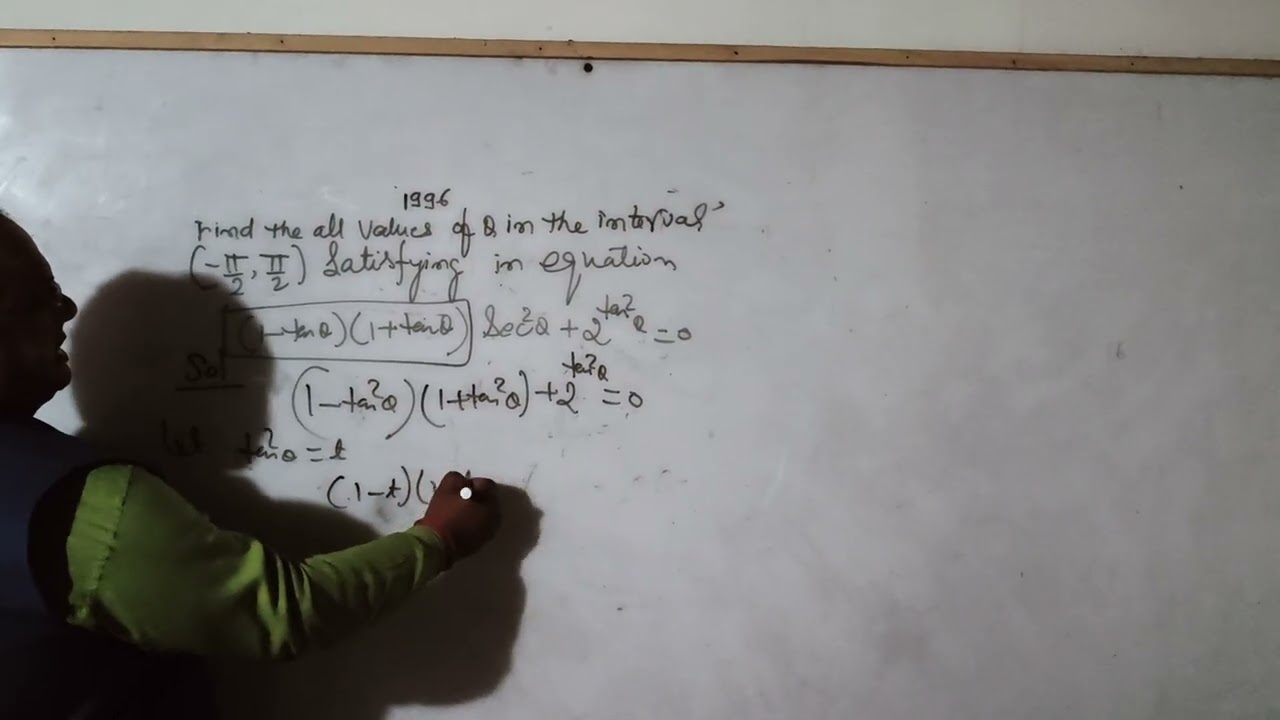 1996
Find the all values of θ in the interval
(-π/2, π/2) Satisfying in equation
(1-tanθ)(1+tanθ) Sec²θ + 2^tan²θ = 0
Sol
(1-tan²θ)(1+tan²θ) + 2^tan²θ = 0
let tan²θ = t
(1-t)(1